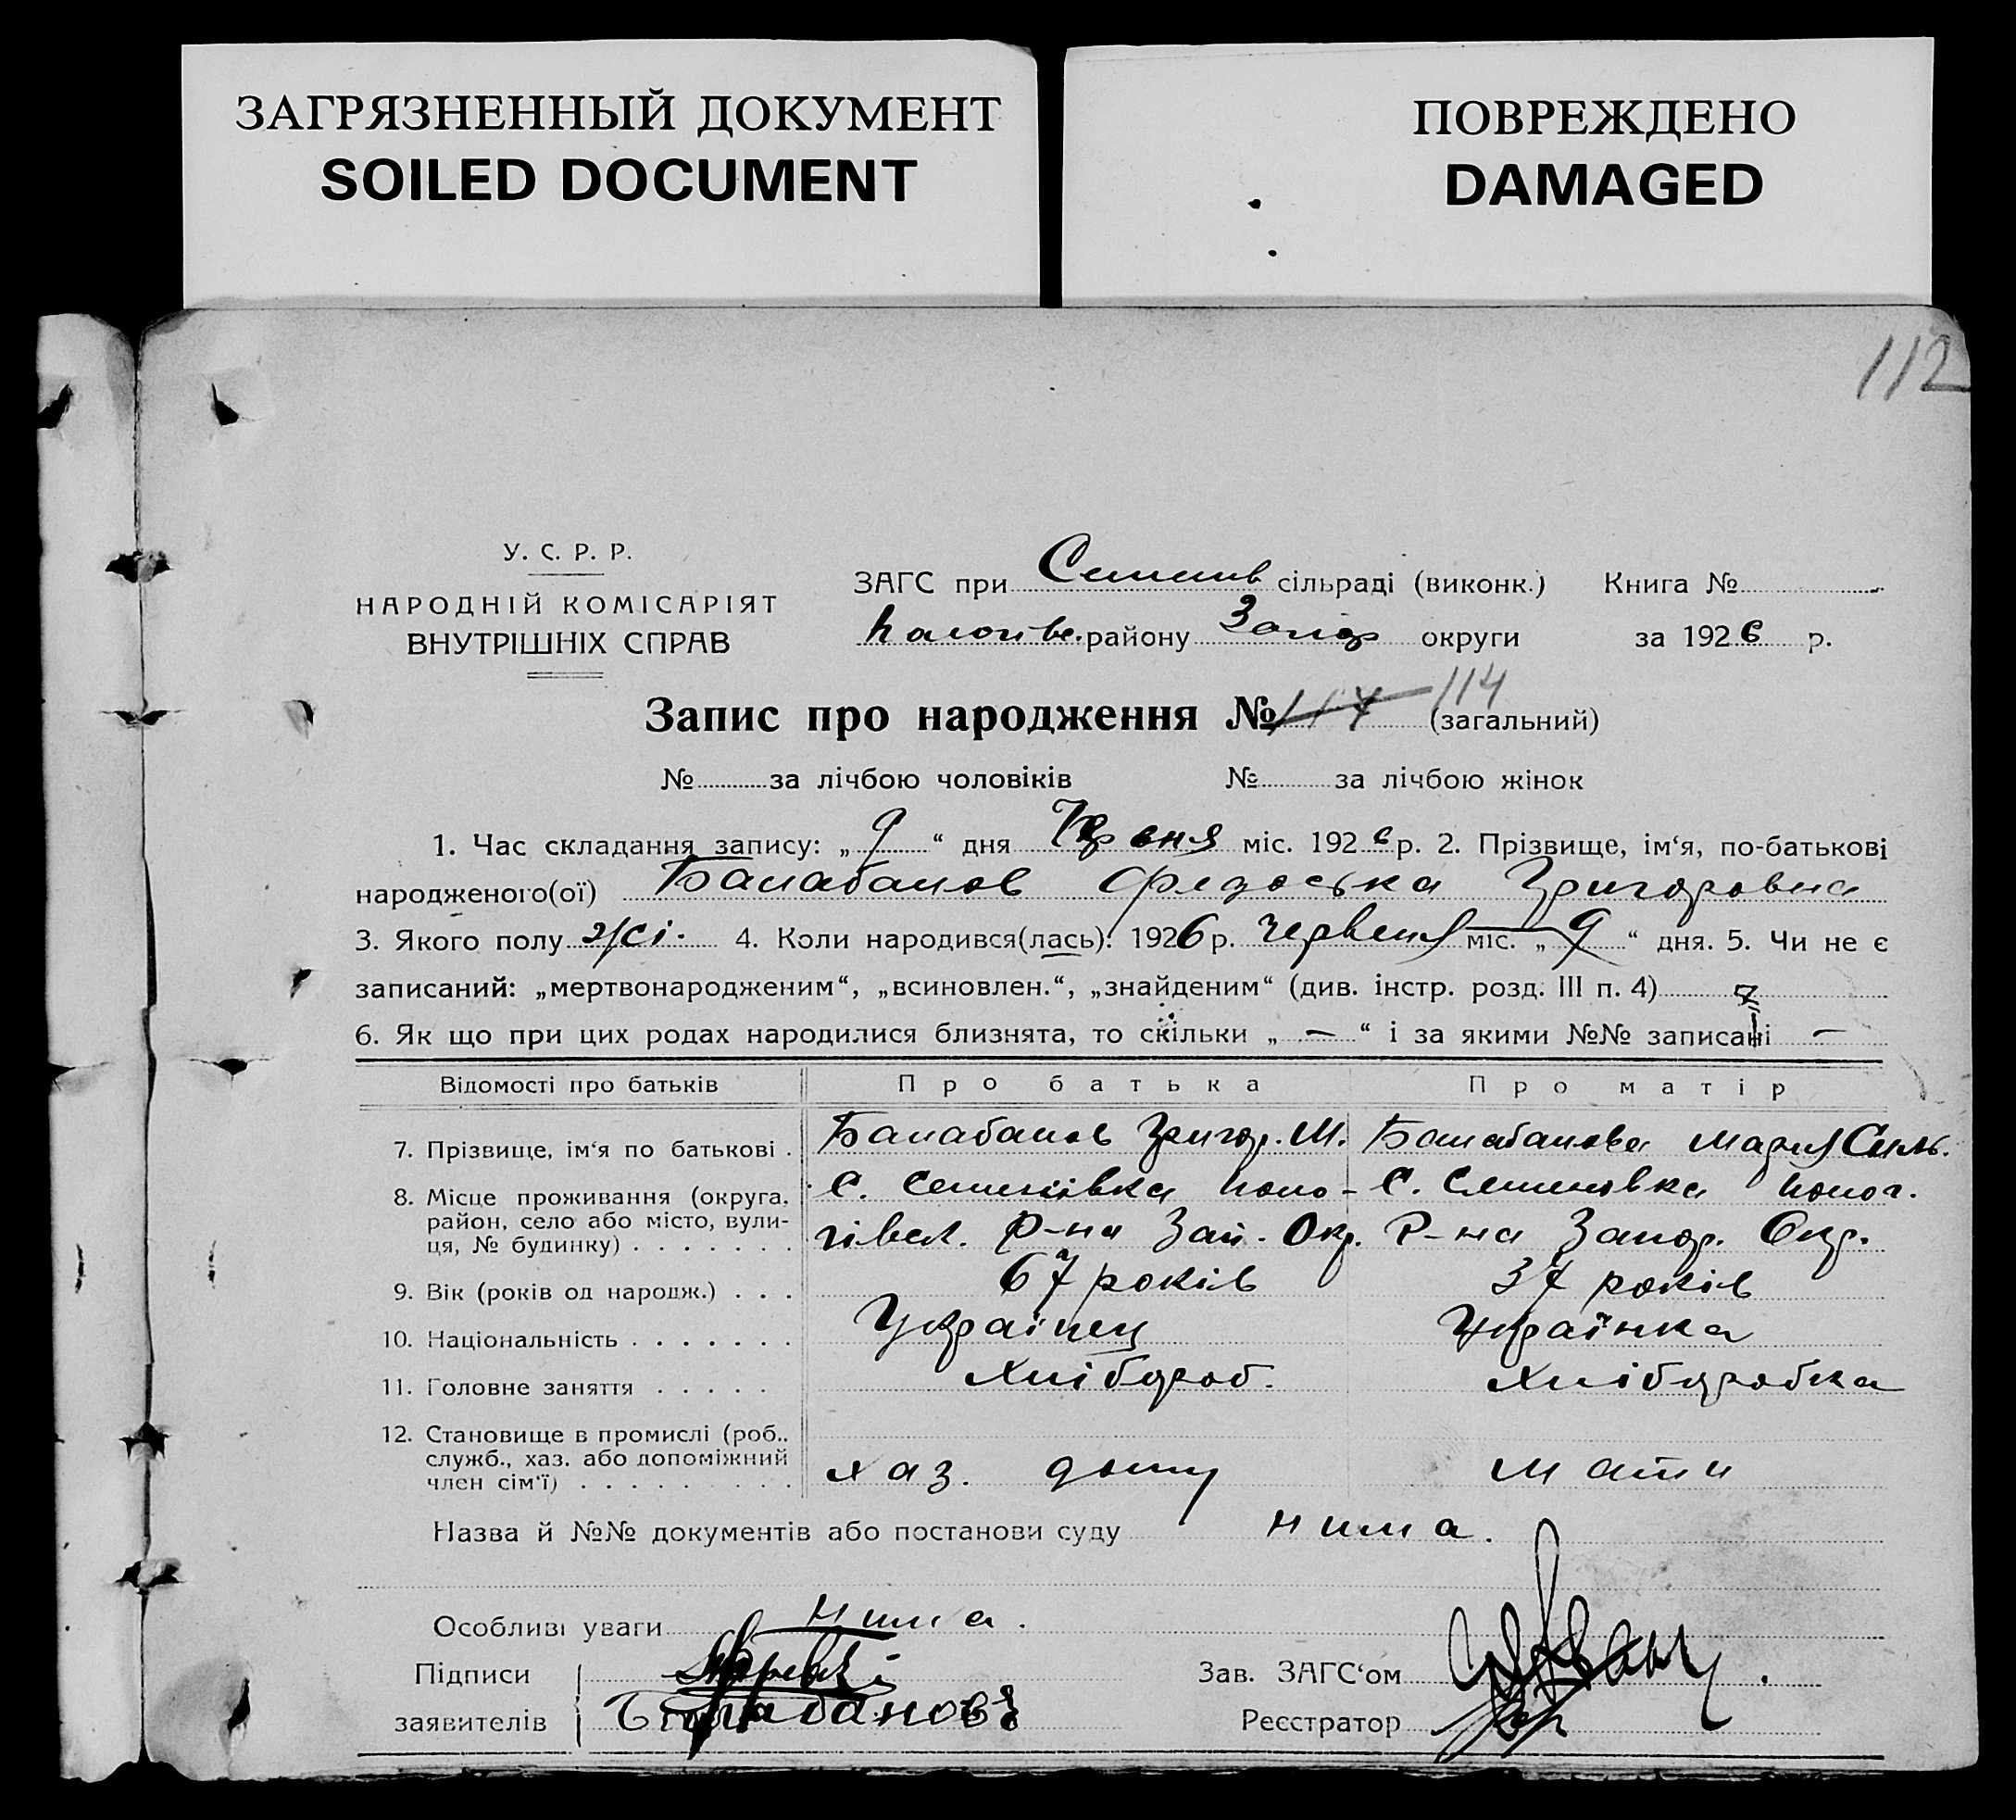 ЗАГРЯЗНЕННЫЙ ДОКУМЕНТ
SOILED DOCUMENT
ПОВРЕЖДЕНО
DAMAGED
112
У. С. Р. Р.
НАРОДНІЙ КОМІСАРІЯТ
ВНУТРІШНІХ СПРАВ
ЗАГС при Семенів сільраді (виконк.) Книга №
району Запор округи за 1926 р.
Запис про народження № 117 114 (загальний)
№ за лічбою чоловіків № за лічбою жінок
1. Час складання запису: „ 9 “ дня Червня міс. 1926 р. 2. Прізвище, ім‘я, по-батькові
народженого(ої) Балабанов Федоська Григоровна
3. Якого полу жі. 4. Коли народився(лась): 1926 р. червеня міс. „ 9 “ дня. 5. Чи не є
записаний: „мертвонародженим“, „всиновлен.“, „знайденим“ (див. інстр. розд. III п. 4)
6. Як що при цих родах народилися близнята, то скільки „ — “ і за якими №№ записані —
Відомості про батьків Про батька Про матір
7. Прізвище, ім‘я по батькові . Балабанов Григор. М. Балабанова Мария Силь.
8. Місце проживання (округа, с. Семенівка Поло- с. Семеновка Полог.
район, село або місто, вули-
ця, № будинку) . . . . . . . гівск. р-на Зап. Окр. Р-на Запор. Окр.
9. Вік (років од народж.) . . . 67 років 37 років
10. Національність . . . . . . . Українец Українка
11. Головне заняття . . . . . Хлібороб. Хліборобка
12. Становище в промислі (роб.,
служб., хаз. або допоміжний
член сім‘ї) . . . . . . . . . хаз. дому мати
Назва й №№ документів або постанови суду нима.
Особливі уваги нима.
Підписи Зав. ЗАГС‘ом
заявителів Балабанов Реєстратор